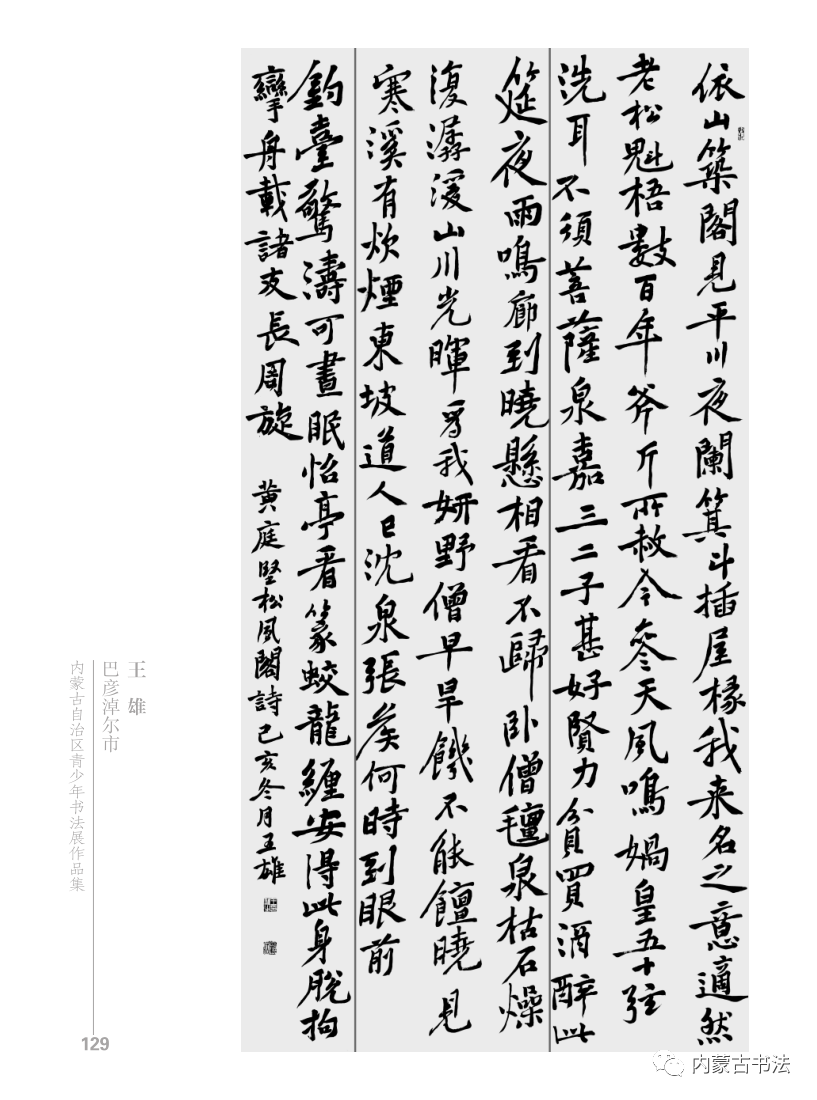 依山築閣見平川夜闌箕斗插屋椽我来名之意適然
老松魁梧數百年斧斤所赦今參天風鳴媧皇五十弦
洗耳不須菩薩泉嘉三二子甚好賢力貧買酒醉此
筵夜雨鳴廊到曉懸相看不歸卧僧氊泉枯石燥
復潺湲山川光暉爲我妍野僧早旱饑不能饘曉見
寒溪有炊煙東坡道人已沈泉張矦何時到眼前
釣臺驚濤可晝眠怡亭看篆蛟龍纏安得此身脫拘
攣舟載諸友長周旋
黄庭堅松風閣詩己亥冬月王雄
王雄
巴彦淖尔市
内蒙古自治区青少年书法展作品集
129
内蒙古书法